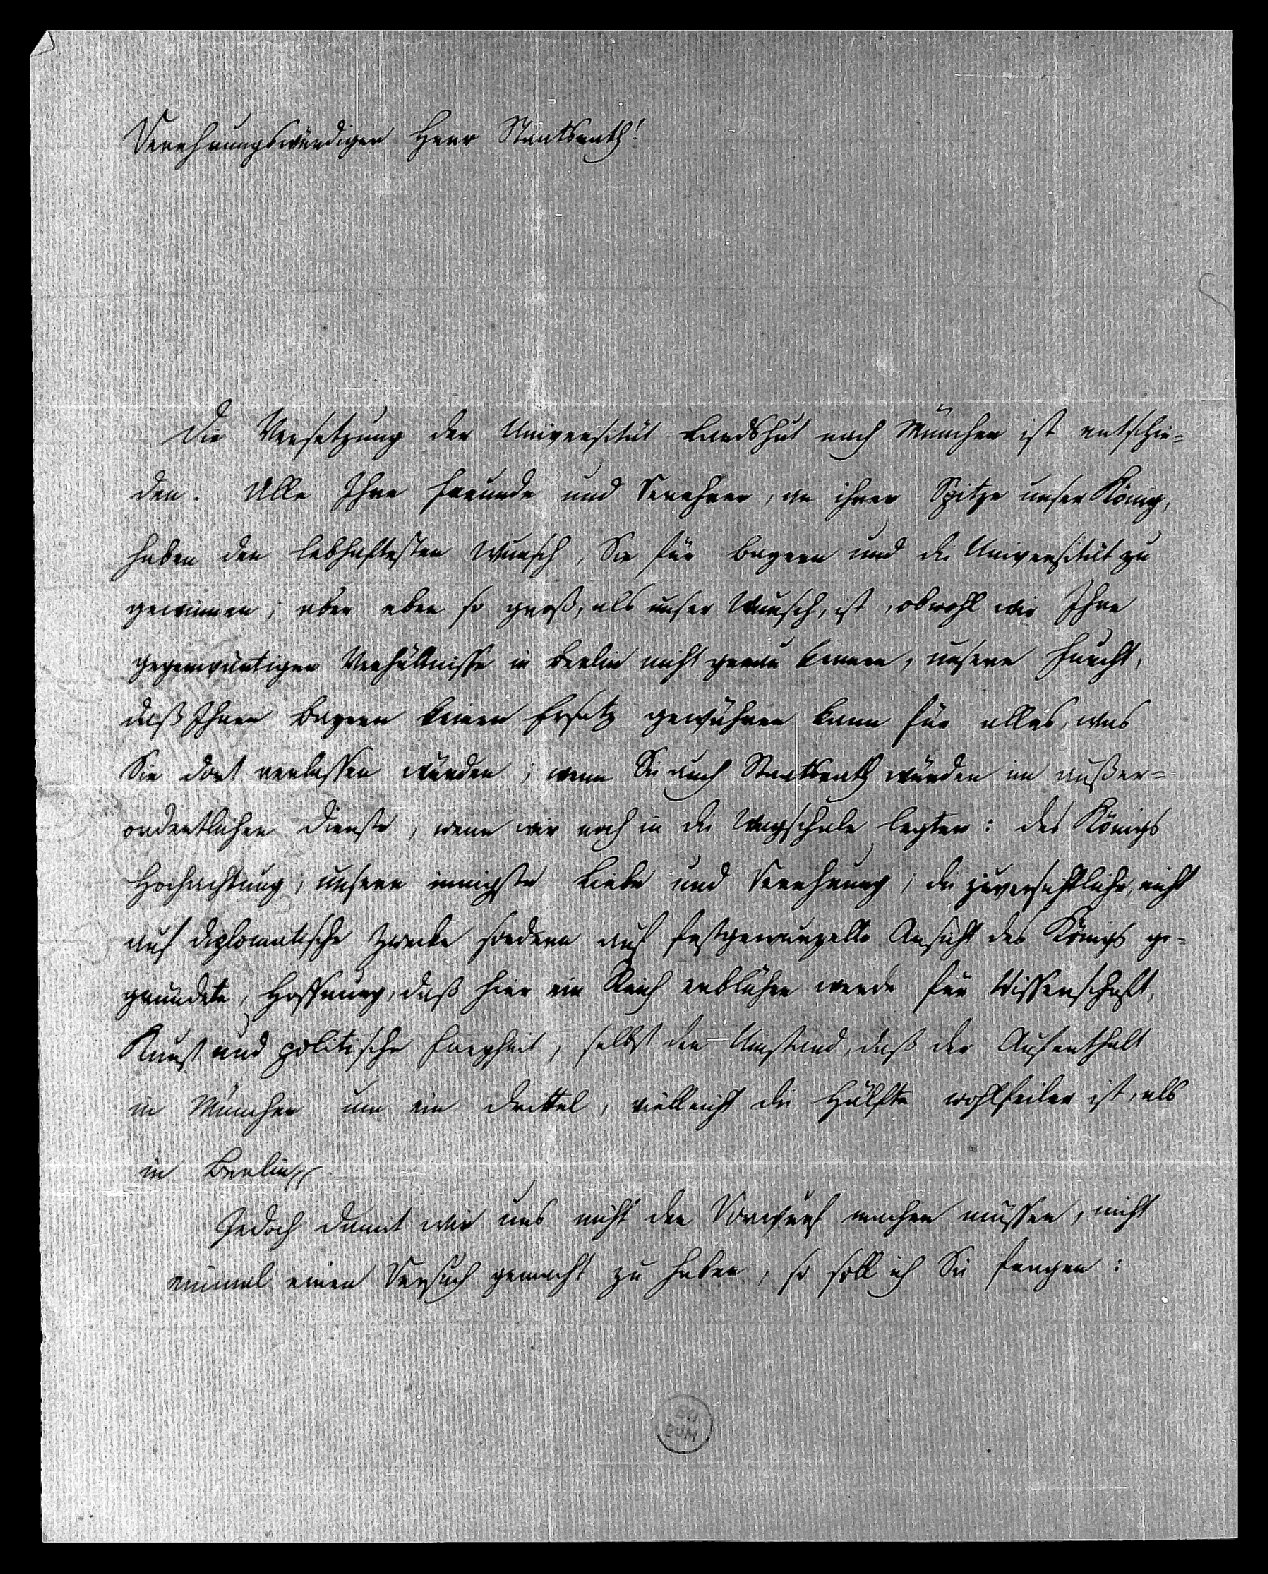 Verehrungswürdiger Herr Staatsrath!
Die Versetzung der Universität Landshut nach München ist entschie-
den. Alle Ihre Freunde und Verehrer, an ihrer Spitze unser König,
haben den lebhaftesten Wunsch, Sie für Bayern und die Universität zu
gewinnen; aber eben so groß, als unser Wunsch, ist, obwohl wir Ihre
gegenwärtigen Verhältnisse in Berlin nicht genau kennen, unsere Furcht,
daß Ihnen Bayern keinen Ersatz gewähren kann für alles, was
Sie dort verlassen würden; wenn Sie auch Staatsrath würden im außer-
ordentlichen Dienste, wenn wir noch in die Wagschale legten: des Königs
Hochachtung, unsere innigste Liebe und Verehrung; die zuversichtliche, nicht
auf diplomatische Zwecke sondern auf festgewurzelte Ansicht des Königs ge-
gründete, Hoffnung, daß hier ein Reich erblühen werde für Wissenschaft,
Kunst und politische Freyheit, selbst den Umstand, daß der Aufenthalt
in München um ein Drittel, vielleicht die Hälfte wohlfeiler ist, als
in Berlin
Jedoch damit wir uns nicht den Vorwurf machen müssen, nicht
einmal einen Versuch gemacht zu haben, so soll ich Sie fragen: